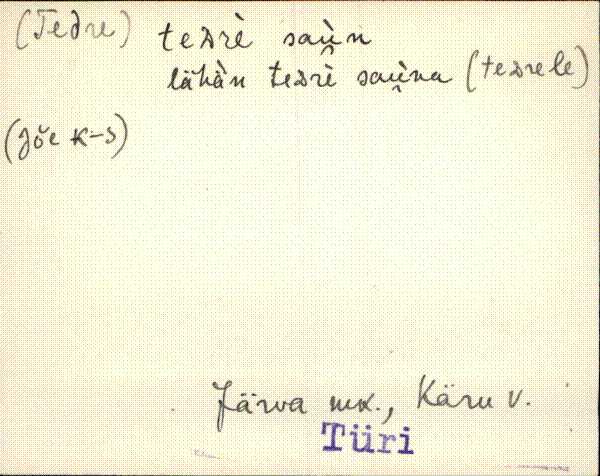 (Tedre) teᴅrè saù̯n
lähàn teᴅrè saù̯na (teᴅrele)
(Jõe k-s)
Järva mk., Käru v.
Türi